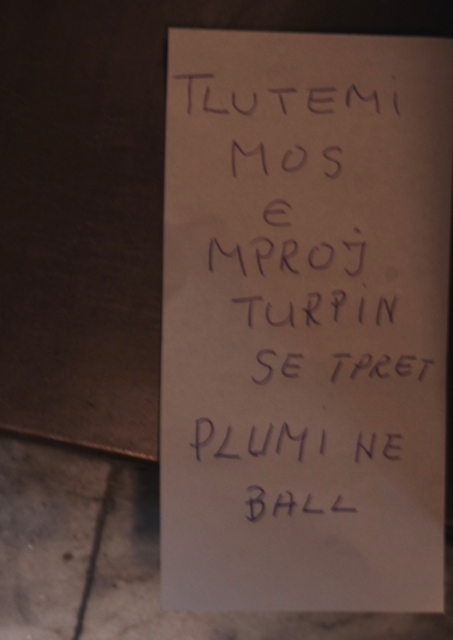 TLUTEMI
MOS
E
MPROJ
TURPIN
SE TPRET
PLUMI NE
BALL